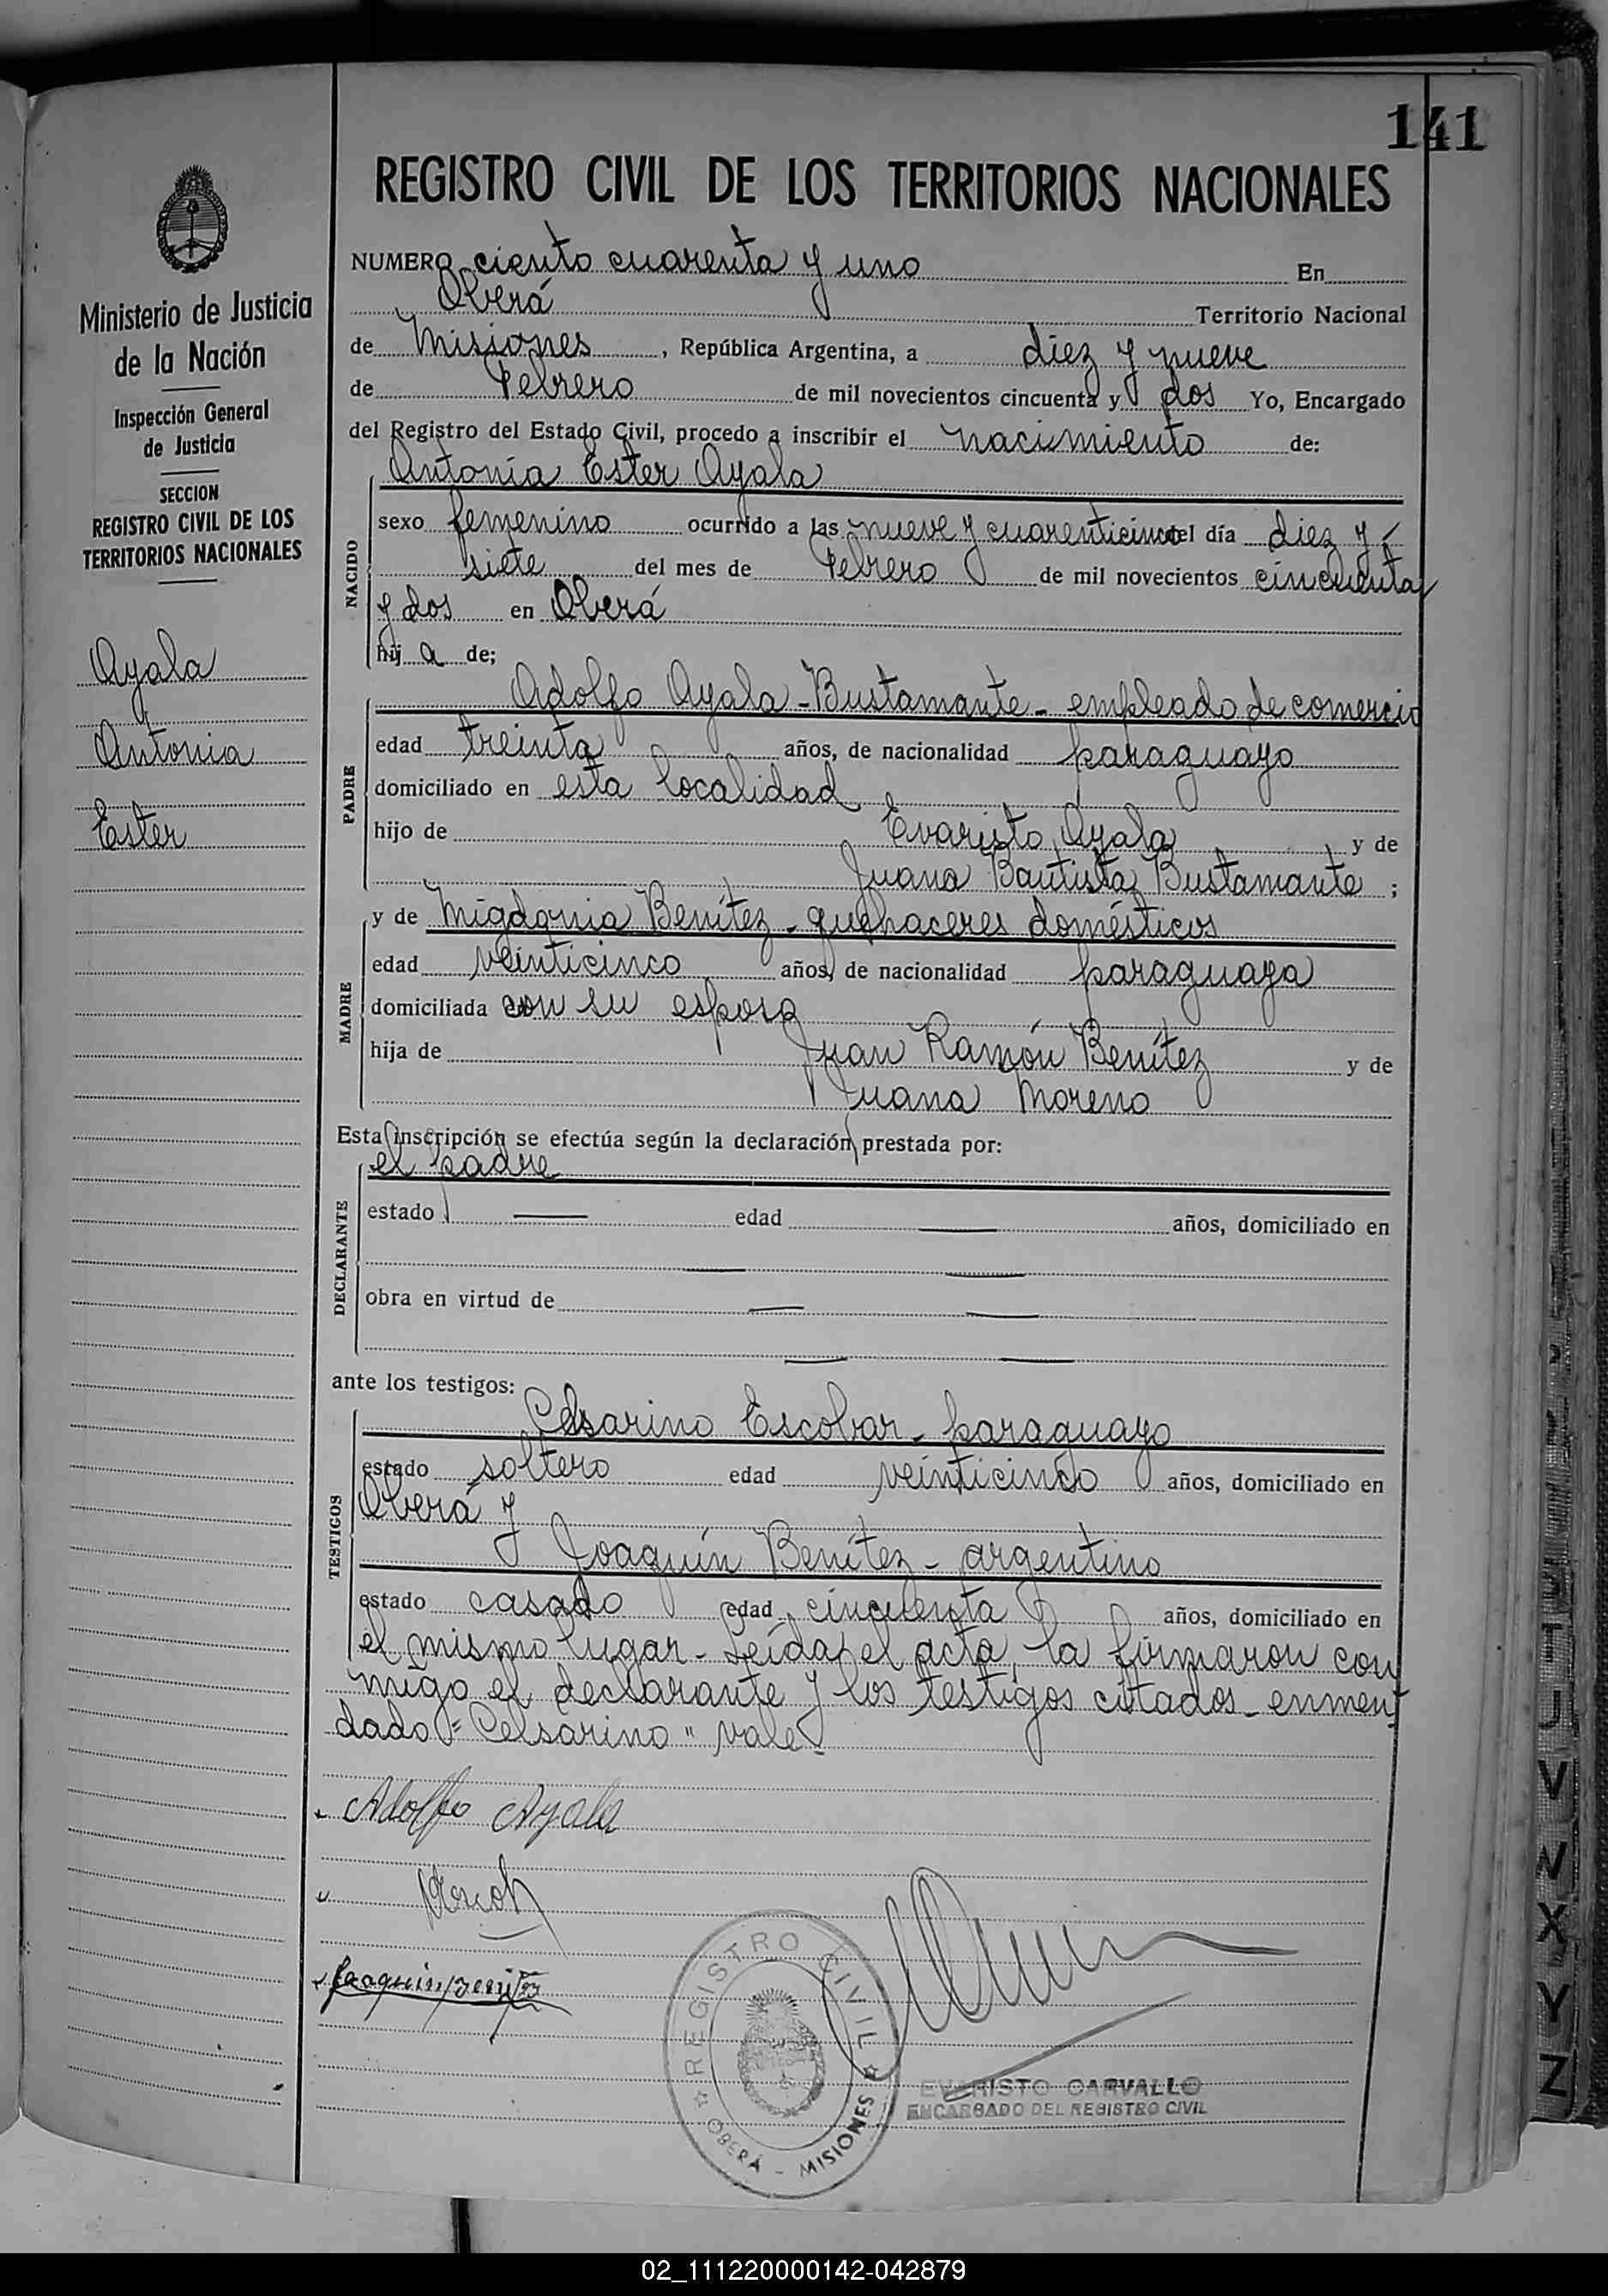 141
REGISTRO CIVIL DE LOS TERRITORIOS NACIONALES
Ministerio de Justicia
de la Nación
Inspección General
de Justicia
SECCION
REGISTRO CIVIL DE LOS
TERRITORIOS NACIONALES
Ayala
Antonia
Ester
NUMERO ciento cuarenta y uno En
Oberá Territorio Nacional
de Misiones, República Argentina, a diez y nueve
de Febrero de mil novecientos cincuenta y dos Yo, Encargado
del Registro del Estado Civil, procedo a inscribir el nacimiento de:
Antonia Ester Ayala
NACIDO
sexo femenino ocurrido a las nueve y cuarenticinco del día diez y
siete del mes de Febrero de mil novecientos cincuenta
y dos en Oberá
hij a de;
PADRE
Adolfo Ayala - Bustamante - empleado de comercio
edad treinta años, de nacionalidad paraguayo
domiciliado en esta localidad
hijo de Evaristo Ayala y de
Juana Bautista Bustamante ;
MADRE
y de Migdonia Benítez - quehaceres domésticos
edad veinticinco años, de nacionalidad paraguaya
domiciliada con su esposo
hija de Juan Ramón Benítez y de
Juana Moreno
Esta inscripción se efectúa según la declaración prestada por:
DECLARANTE
el padre
estado — edad — años, domiciliado en
— —
obra en virtud de — —
— —
ante los testigos:
TESTIGOS
Celsarino Escobar - paraguayo
estado soltero edad veinticinco años, domiciliado en
Oberá y
Joaquín Benítez - argentino
estado casado edad cincuenta años, domiciliado en
el mismo lugar - Leída el acta, la firmaron con
migo el declarante y los testigos citados - enmen-
dado = "Celsarino" vale -
Adolfo Ayala
Joaquin Benitez
REGISTRO CIVIL
OBERÁ - MISIONES
EVARISTO CARVALLO
ENCARGADO DEL REGISTRO CIVIL
J
V
W
X
Y
Z
02_111220000142-042879